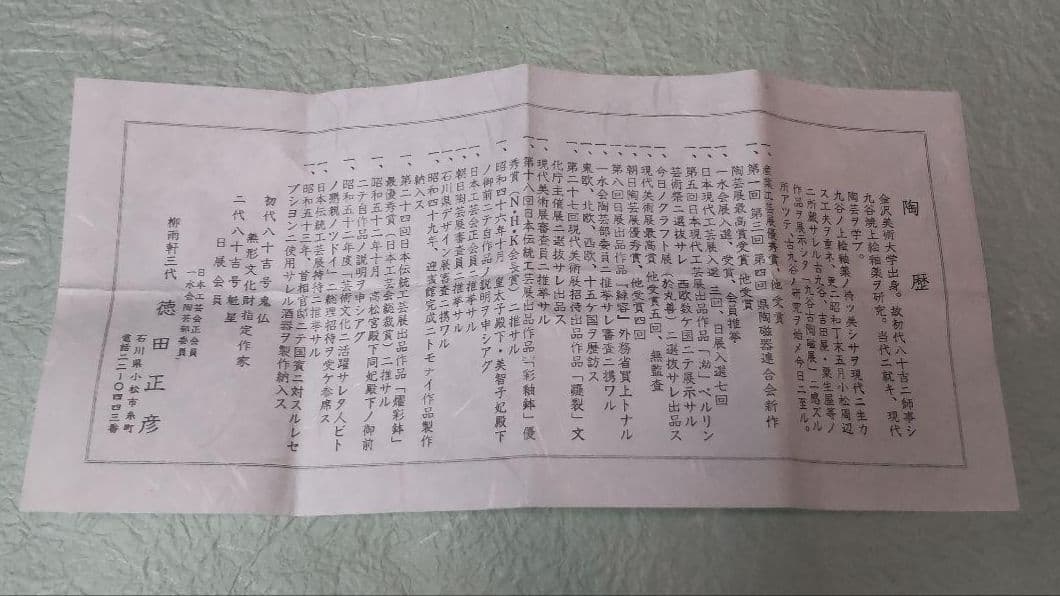 陶歴
金沢美術大学出身。故初代八十吉ニ師事シ
九谷焼上絵釉薬ヲ研究。当代ニ就キ、現代
陶芸ヲ学ブ。
九谷ノ上絵釉薬ノ持ツ美シサヲ現代ニ生カ
ス工夫ヲ重ネ、更ニ昭和丁未五月小松周辺
ニ所蔵サレル古九谷、吉田屋・粟生屋等ノ
作品ヲ展示シタ「九谷古陶磁展」ニ感ズル
所アツテ、古九谷ノ研究ヲ始メ今日ニ至ル。
一、産業工芸展優秀賞、他受賞
一、第一回 第三回 第四回 県陶磁器連合会新作
陶芸展最高賞受賞 他受賞
一、一水会展入選、受賞、会員推挙
一、日本現代工芸展入選 三回、日展入選七回
一、第五回日本現代工芸展出品作品「泑」ベルリン
芸術祭ニ選抜サレ 西欧数ケ国ニテ展示サル
一、今日ノクラフト展(於丸善)ニ選抜サレ出品ス
一、現代美術展最高賞 他受賞五回、無監査
一、朝日陶芸展優秀賞、他受賞四回
一、第八回日展出品作品「緑容」外務省買上トナル
一、一水会陶芸部委員ニ推挙サレ審査ニ携ワル
一、東欧、北欧、西欧、十五ケ国ヲ歴訪ス
一、第二十七回現代美術展招待出品作品「羅裂」文
化庁主催展ニ選抜サレ出品ス
一、現代美術展審査員ニ推挙サル
一、第十八回日本伝統工芸展出品作品「彩釉鉢」優
秀賞(N・H・K会長賞)ニ推サル
一、昭和四十六年十月、皇太子殿下・美智子妃殿下
ノ御前ニテ自作品ノ説明ヲ申シアグ
一、日本工芸会正会員ニ推挙サル
一、朝日陶芸展審査員ニ推挙サル
一、石川県デザイン展審査ニ携ワル
一、昭和四十九年、迎賓館完成ニトモナイ作品製作
納入ス
一、第二十四回日本伝統工芸展出品作品「燿彩鉢」
最優秀賞(日本工芸会総裁賞)ニ推サル
一、昭和五十二年十月 高松宮殿下同妃殿下ノ御前
ニテ自作品ノ説明ヲ申シアグ
一、昭和五十二年度「芸術文化ニ活躍サレタ人ビト
ノ懇親ノツドイ」ニ総理招待ヲ受ケ参席ス
一、日本伝統工芸展特待ニ推挙サル
一、昭和五十三年、首相官邸ニテ国賓ニ対スルレセ
プシヨンニ使用サレル酒器ヲ製作納入ス
初代八十吉号鬼仏
無形文化財指定作家
二代八十吉号魁星
日展会員
日本工芸会正会員
一水会陶芸部委員
柳雨軒三代 徳田正彦
石川県小松市糸町
電話二二-〇四四三番